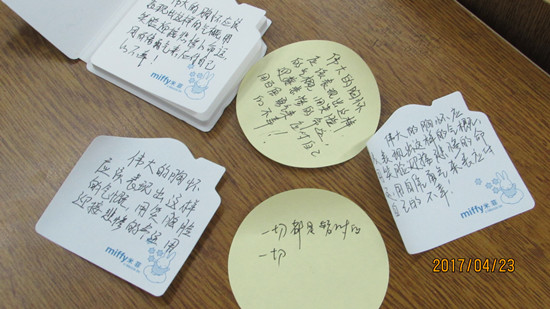 伟大的胸怀应该
表现出这样的气概用
笑脸迎接悲惨的命运,
用百倍勇气来应付自己
的不幸!
miffy米菲
伟大的胸怀
应该表现出这样
的气概 用笑脸
迎接悲惨的命运,
用百倍勇气来应付自己
的不幸!
伟大的胸怀, 应
该表现出这样的气概
笑脸迎接悲惨的命
用百倍勇气来应付
己的不幸!
miffy米菲
伟大的胸怀
应该表现出这样
的气慨 用笑脸
迎接悲惨的命运 用
miffy米菲
一切都是暂时的
一切
2017/04/23